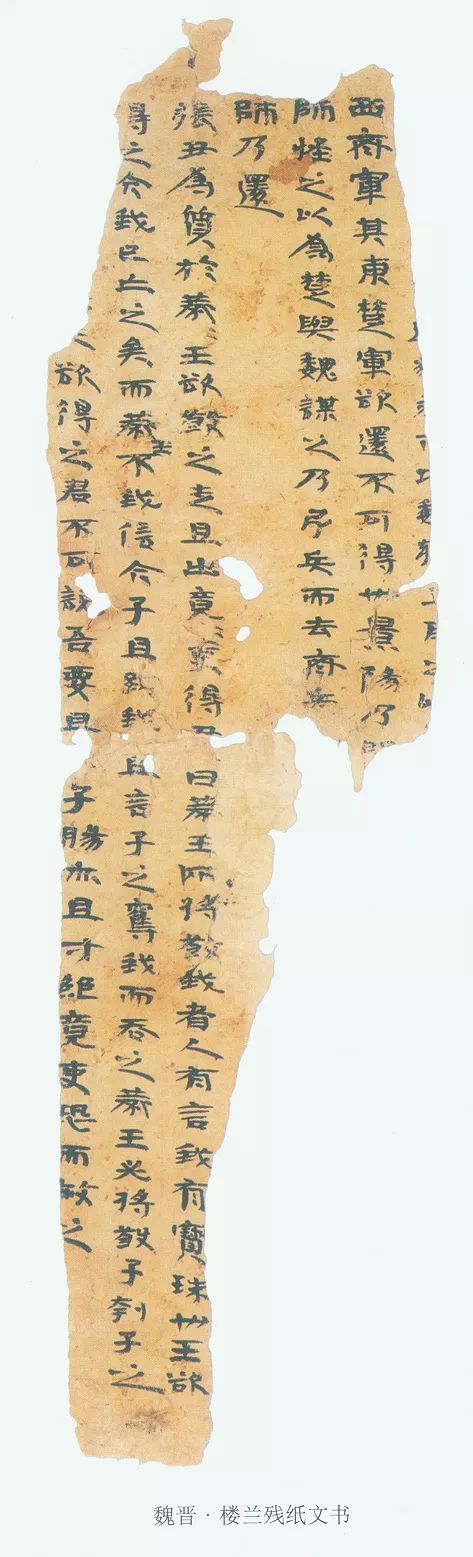 西齊軍其東楚軍欲還不可得也景陽乃開
師怪之以為楚與魏謀之乃引兵而去齊兵
師乃還
張丑為質於燕王欲殺之走且出竟吏得丑曰燕王所將殺我者人有言我有寶珠也王欲
得之今我已亡之矣而燕王不我信今子且致我且言子之奪我而吞之燕王必將殺子刳子之
欲得之君不可說吾要且子腸亦且寸絕竟吏恐而赦之
魏晋·楼兰残纸文书